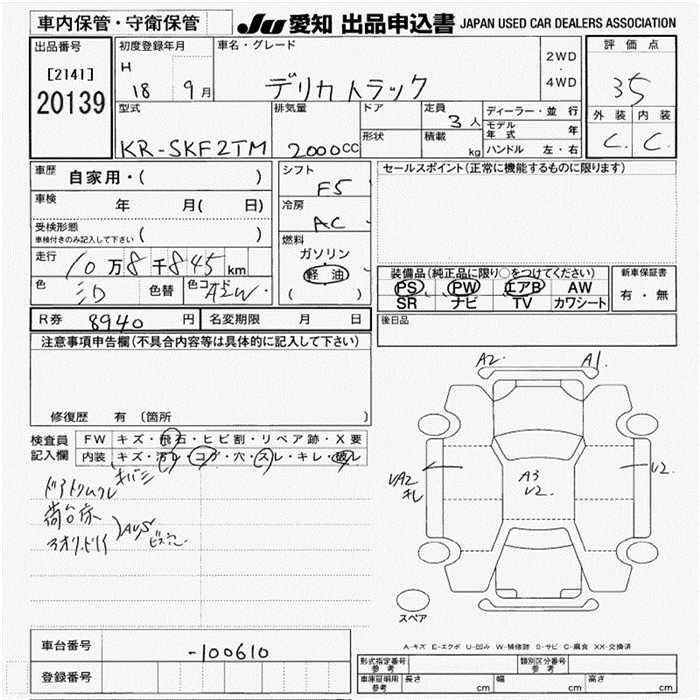 車内保管・守衛保管
JU 愛知 出品申込書 JAPAN USED CAR DEALERS ASSOCIATION
出品番号
[2141]
20139
初度登録年月
H 18 9月
車名・グレード
デリカトラック
2WD
・
4WD
評価点
35
外装 内装
C C
型式
KR-SKF2TM
排気量
2000cc
ドア
形状
定員 3人
積載 kg
ディーラー・並行
モデル年式 年
ハンドル 左・右
車歴 自家用・( )
車検 年 月( 日)
受検形態
車検付きのみ記入して下さい ( )
走行 10万8千845km
色
色替
色コード A2W
シフト
F5
冷房
AC
燃料
ガソリン
軽油
( )
セールスポイント(正常に機能するものに限ります)
装備品(純正品に限り○をつけてください)
PS PW エアB AW
SR ナビ TV カワシート
新車保証書
有・無
後日品
R券 8940円
名変期限 月 日
注意事項申告欄(不具合内容等は具体的に記入して下さい)
修復歴 有 (箇所 )
検査員
記入欄
FW キズ・飛石・ヒビ割・リペア跡・X要
内装 キズ・汚レ・コゲ・穴・スレ・キレ・破レ
ドアトリムクレ
荷台床
アオリ
A2 A1
UA2
キレ
A3
U2
U2
スペア
A-キズ E-エクボ U-凹み W-補修跡 S-サビ C-腐食 XX-交換済
車台番号 -100610
登録番号
形式指定番号
参考
類別区分番号
参考
車庫証明用
参考
長さ cm 幅 cm 高さ cm